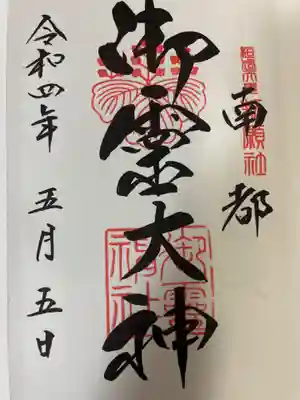 南都
御霊大神
令和四年 五月 五日
御霊神社